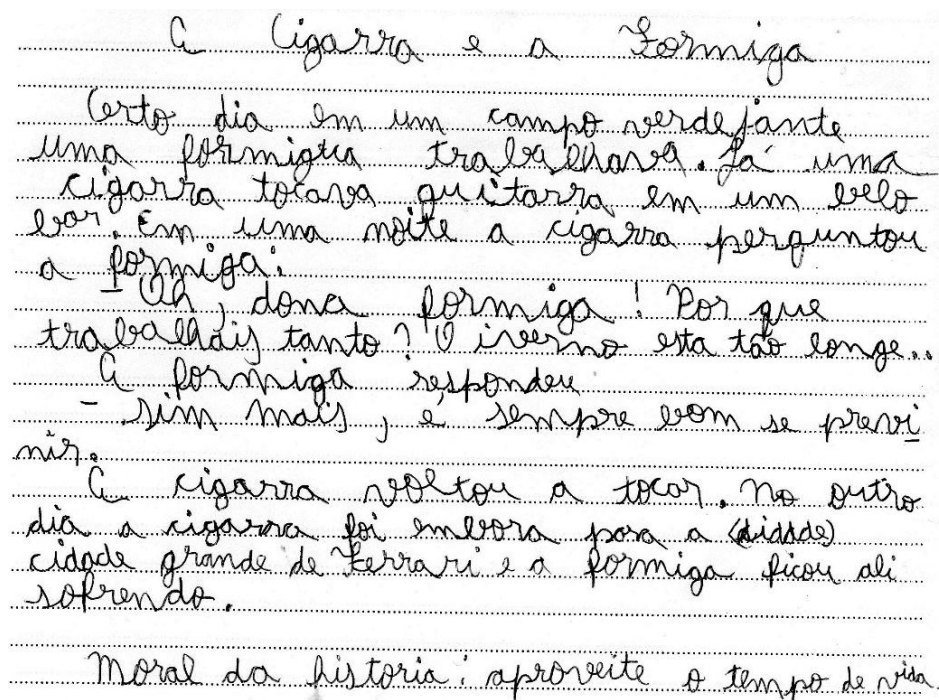 A Cigarra e a Formiga
Certo dia em um campo verdejante
uma formiguia trabalhava. Já uma
cigarra tocava guitarra em um belo
bar. Em uma noite a cigarra perguntou
a formiga:
– Oh, dona formiga! Por que
trabalhais tanto? O inverno esta tão longe...
A formiga respondeu
– Sim mais, é sempre bom se previ
nir.
A cigarra voltou a tocar. No outro
dia a cigarra foi embora para a (cidade)
cidade grande de Ferrari e a formiga ficou ali
sofrendo.
Moral da historia: aproveite o tempo de vida